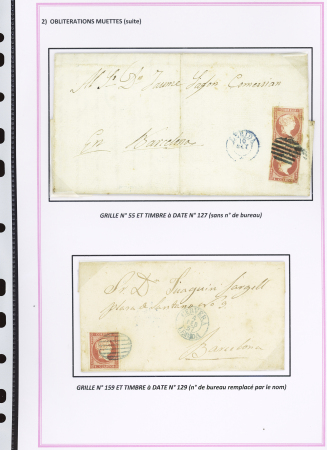 2) OBLITERATIONS MUETTES (suite)
Jaime
Comersian
En Barcelona
LERIDA
10
GRILLE N° 55 ET TIMBRE à DATE N° 127 (sans n° de bureau)
Sr. Dn. Joaquin
n° 3
Barcelona
GRILLE N° 159 ET TIMBRE à DATE N° 129 (n° de bureau remplacé par le nom)